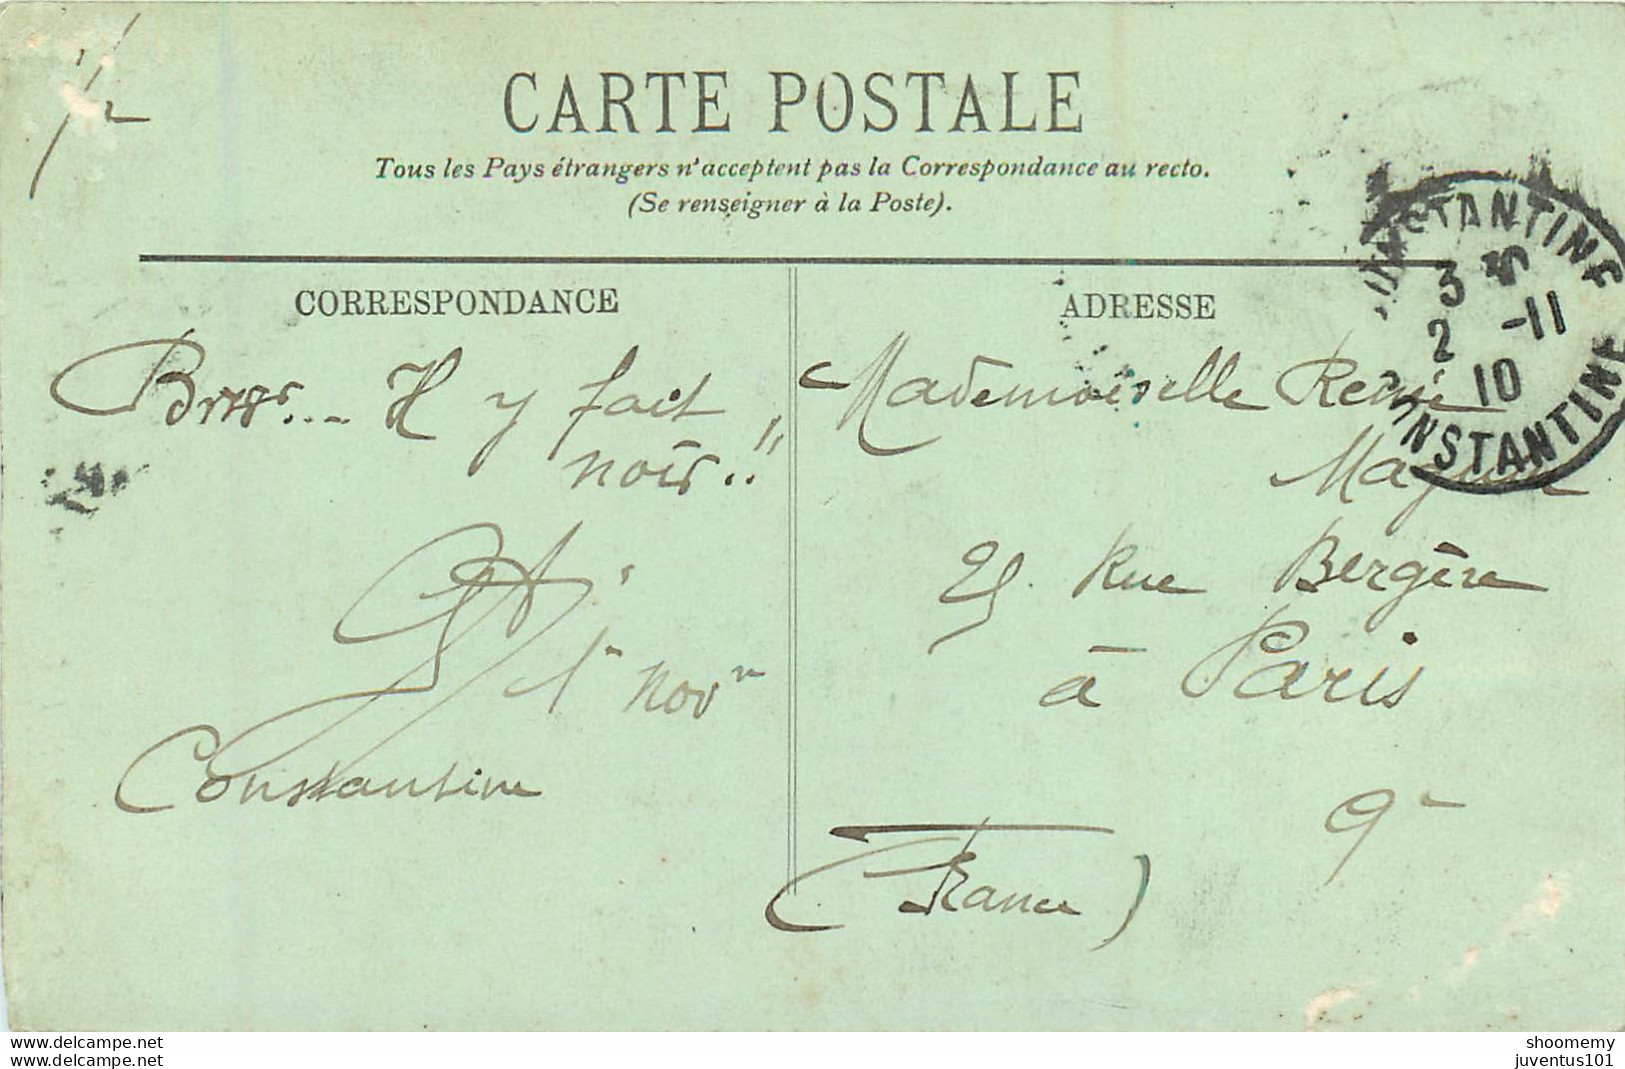 1/2
CARTE POSTALE
Tous les Pays étrangers n'acceptent pas la Correspondance au recto.
(Se renseigner à la Poste).
CONSTANTINE
3 S
2 -11
10
CONSTANTINE
CORRESPONDANCE
Brrr... Il y fait
noir..!!
1er Novre
Constantine
ADRESSE
Mademoiselle
25 Rue Bergère
à Paris
9e
(France)
www.delcampe.net
www.delcampe.net
shoomemy
juventus101